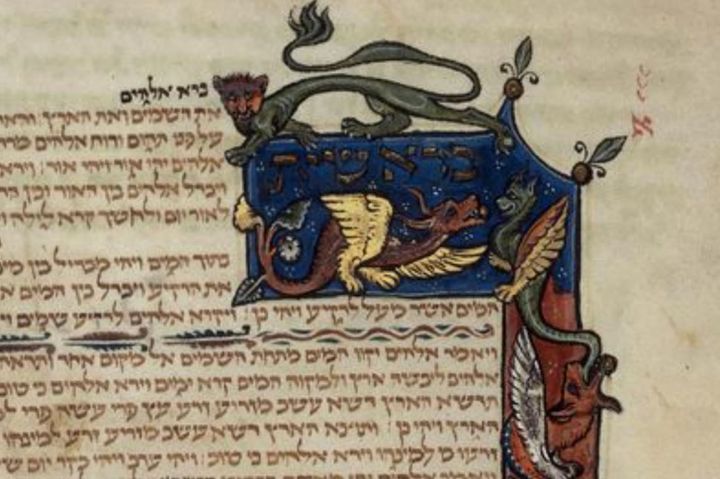 בראשית
ברא אלהים
את השמים ואת הארץ:
על פני תהום ורוח אלהים
אלהים יהי אור ויהי אור: וירא
ויבדל אלהים בין האור ובין
לאור יום ולחשך קרא לילה
בתוך המים ויהי מבדיל בין
את הרקיע ויבדל בין המים
המים אשר מעל לרקיע ויהי כן: ויקרא אלהים לרקיע שמים
ויאמר אלהים יקוו המים מתחת השמים אל מקום אחד ותראה
אלהים ליבשה ארץ ולמקוה המים קרא ימים וירא אלהים כי טוב
תדשא הארץ דשא עשב מזריע זרע עץ פרי עשה פרי
הארץ ויהי כן: ותוצא הארץ דשא עשב מזריע זרע למינהו
זרעו בו למינהו וירא אלהים כי טוב: ויהי ערב ויהי בקר יום